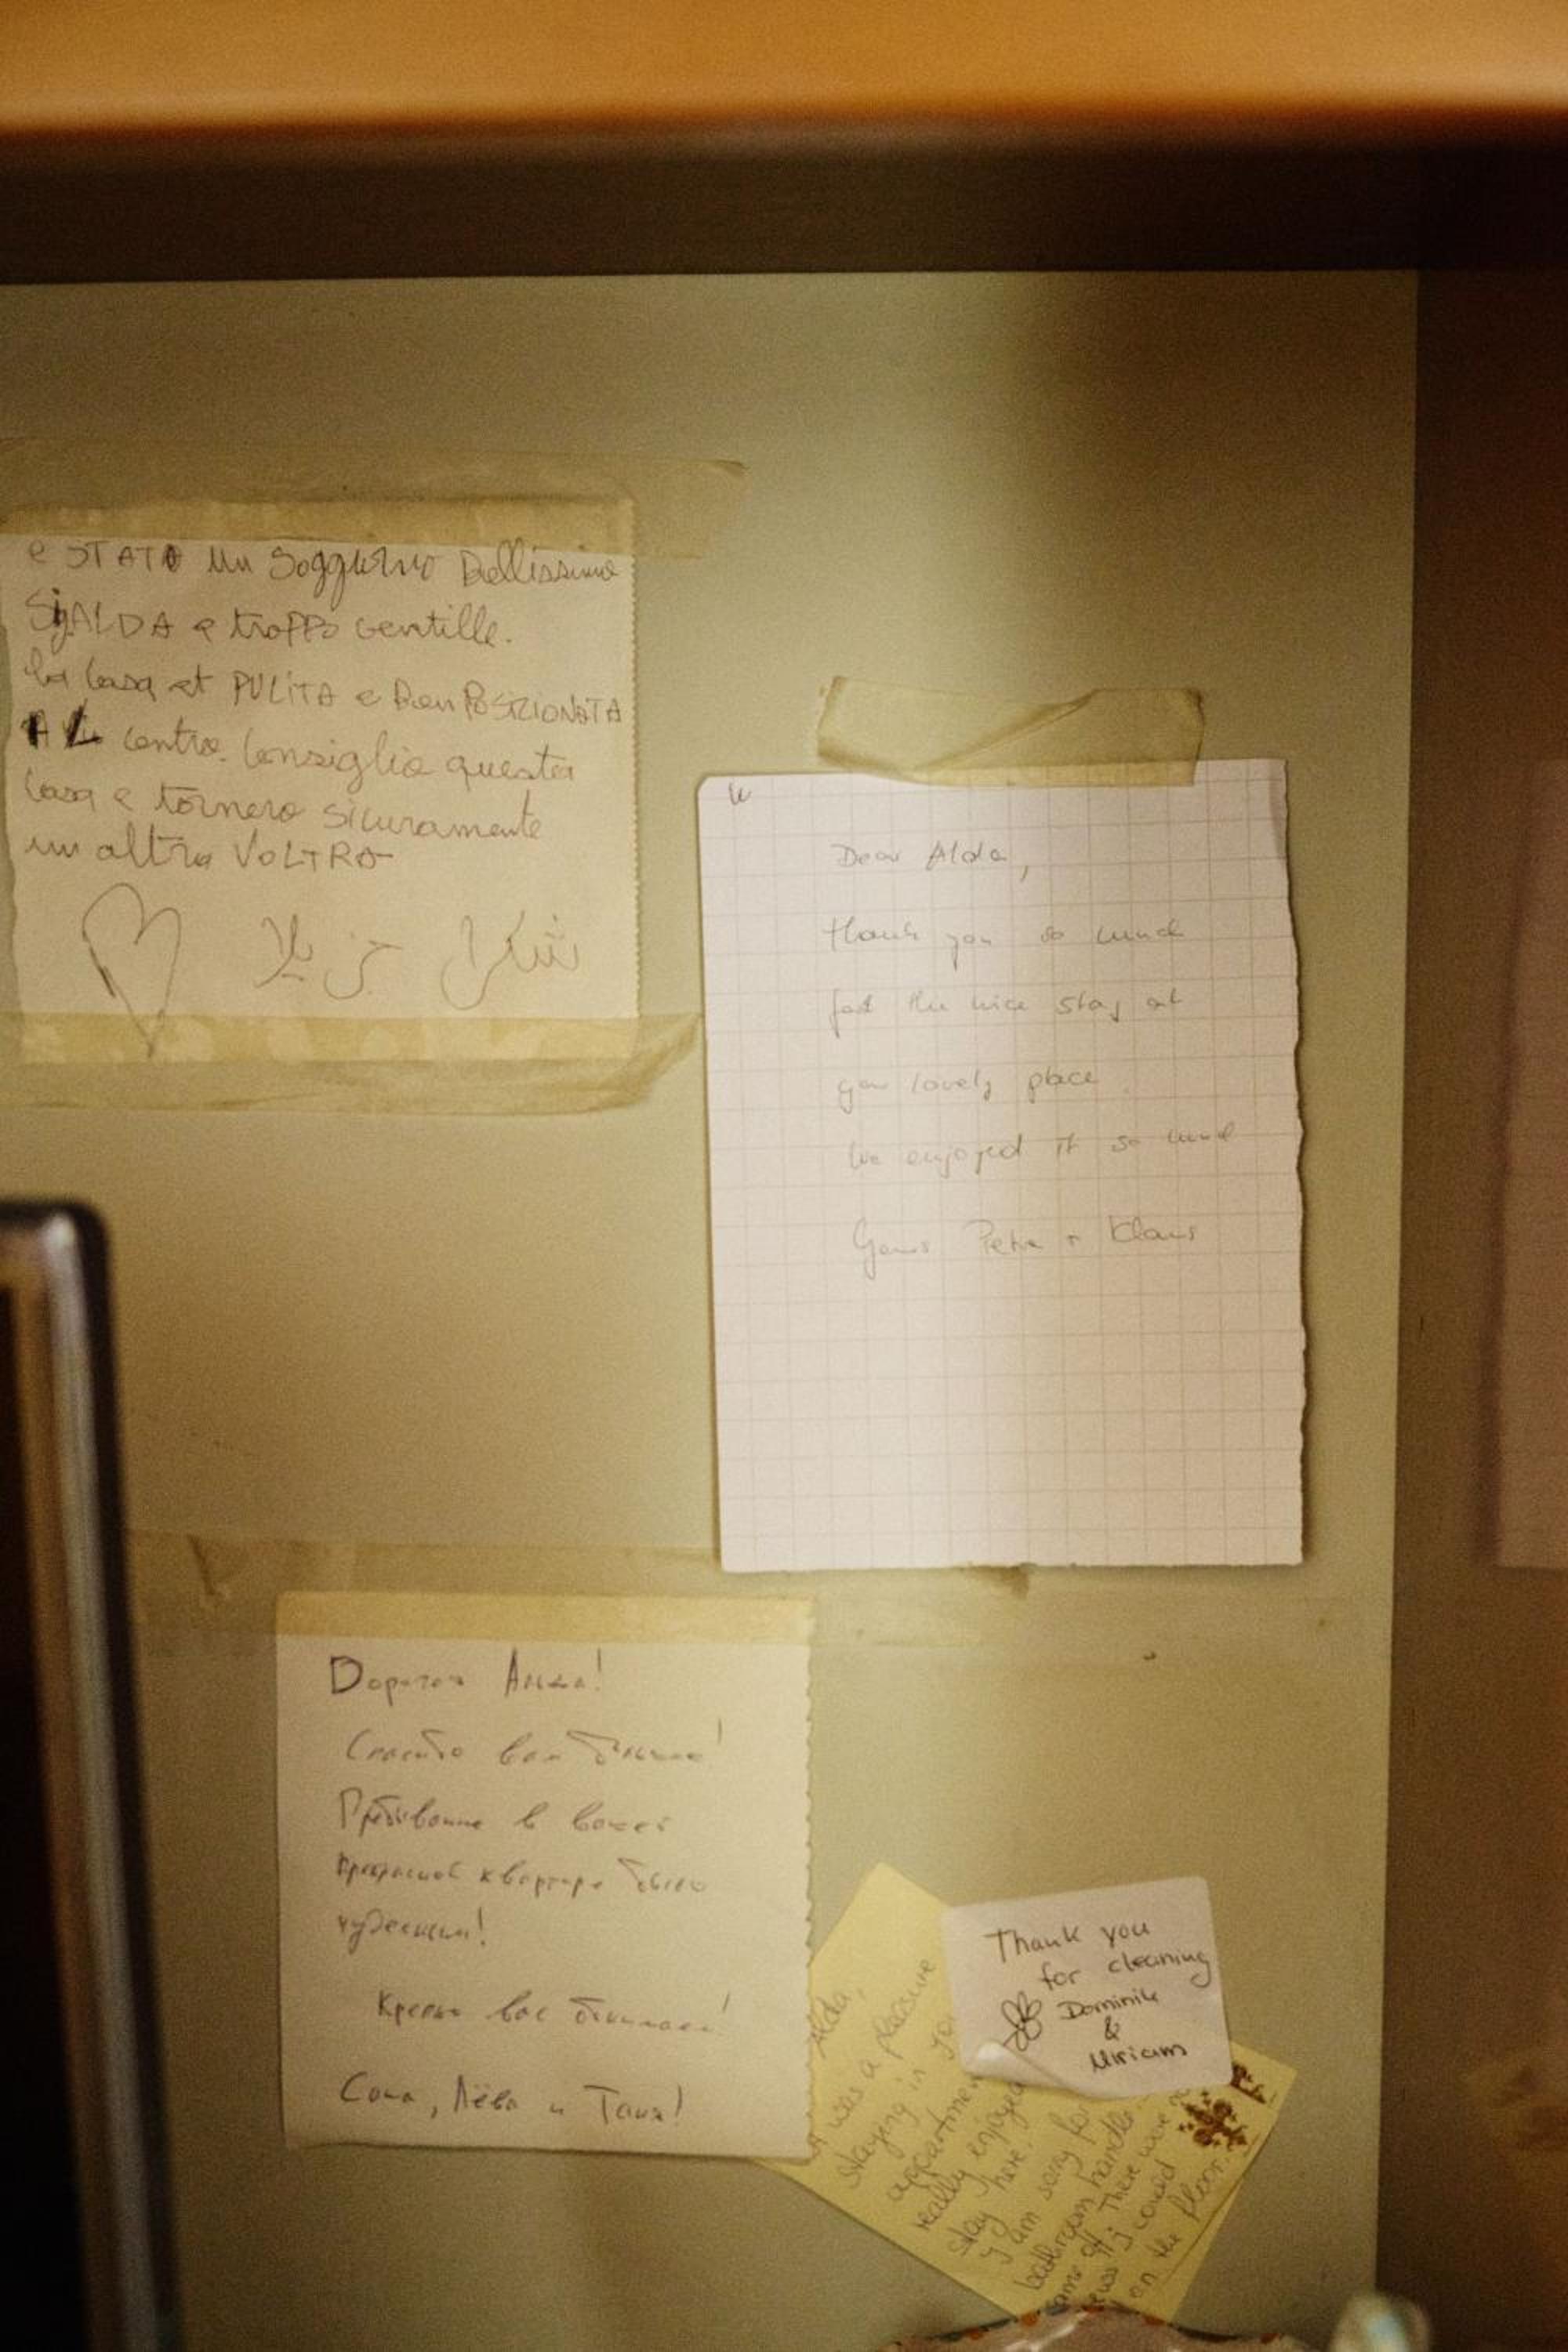 e STATO un Soggurno Bellissimo
Sig ALDA e troppo gentille.
la casa et PULITA e Ben POSIZIONATA
centro. Consiglio questa
casa e tornero sicuramente
un altra VOLTRA
شكرا جزيلا
Dear Alda,
thank you so much
for the nice stay at
your lovely place.
We enjoyed it so much
Yours Petra + Klaus
Дорогая Алда!
Спасибо вам большое!
Пребывание в вашей
прекрасной квартире было
чудесным!
Крепко вас обнимаем!
Соня, Лёва и Таня!
Thank you
for cleaning
Dominik
&
Miriam
Alda,
it was a pleasure
staying in
appartment
really enjoyed
stay here.
I am sorry for
bathroom handle
came off. There were
I could
on the floor.